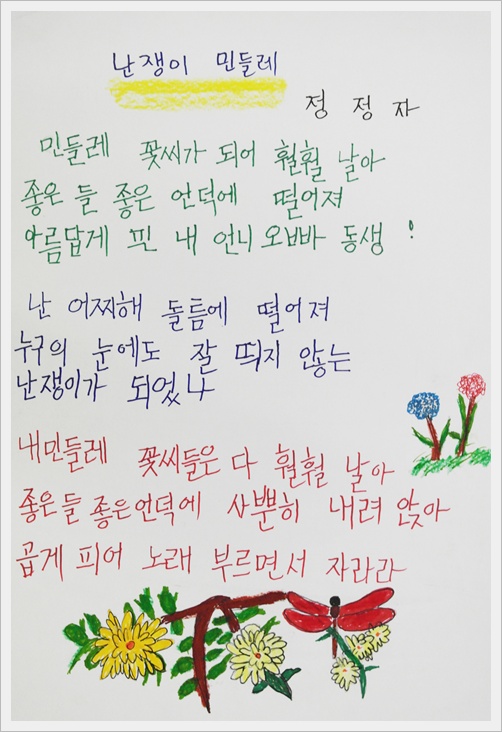 난쟁이 민들레
정정자
민들레 꽃씨가 되어 훨훨 날아
좋은 들 좋은 언덕에 떨어져
아름답게 핀 내 언니 오빠 동생 !
난 어찌해 돌틈에 떨어져
누구의 눈에도 잘 띄지 않놓는
난쟁이가 되었나
내민들레 꽃씨들은 다 훨훨 날아
좋은들 좋은언덕에 사뿐히 내려 앉아
곱게 피어 노래 부르면서 자라라